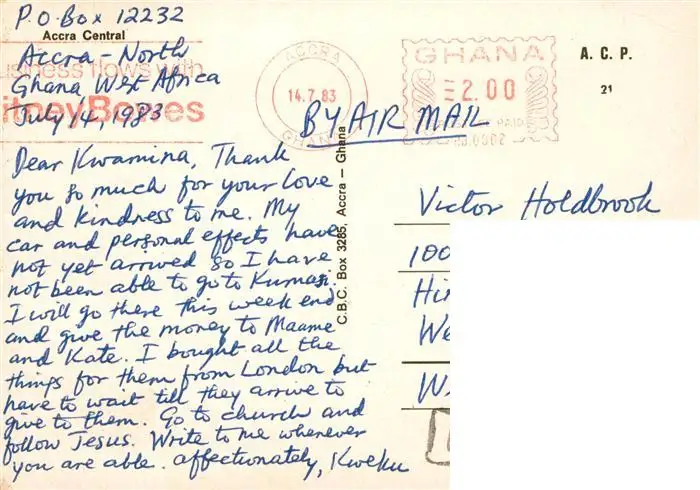 P.O. Box 12232
Accra Central
Accra - North
usiness flows with
Ghana West Africa
itneyBowes
July 14, 1983
Dear Kwamina, Thank
you so much for your love
and kindness to me. My
car and personal effects have
not yet arrived so I have
not been able to go to Kumasi.
I will go there this week end
and give the money to Maame
and Kate. I bought all the
things for them from London but
have to wait till they arrive to
give to them. Go to church and
follow Jesus. Write to me whenever
you are able. affectionately, Kweku
ACCRA
14.7.83
GHANA
GHANA
2.00
PAID
A. C. P.
21
BY AIR MAIL
C.B.C. Box 3285, Accra - Ghana
Victor Holdbrook
100
Hi
We
W